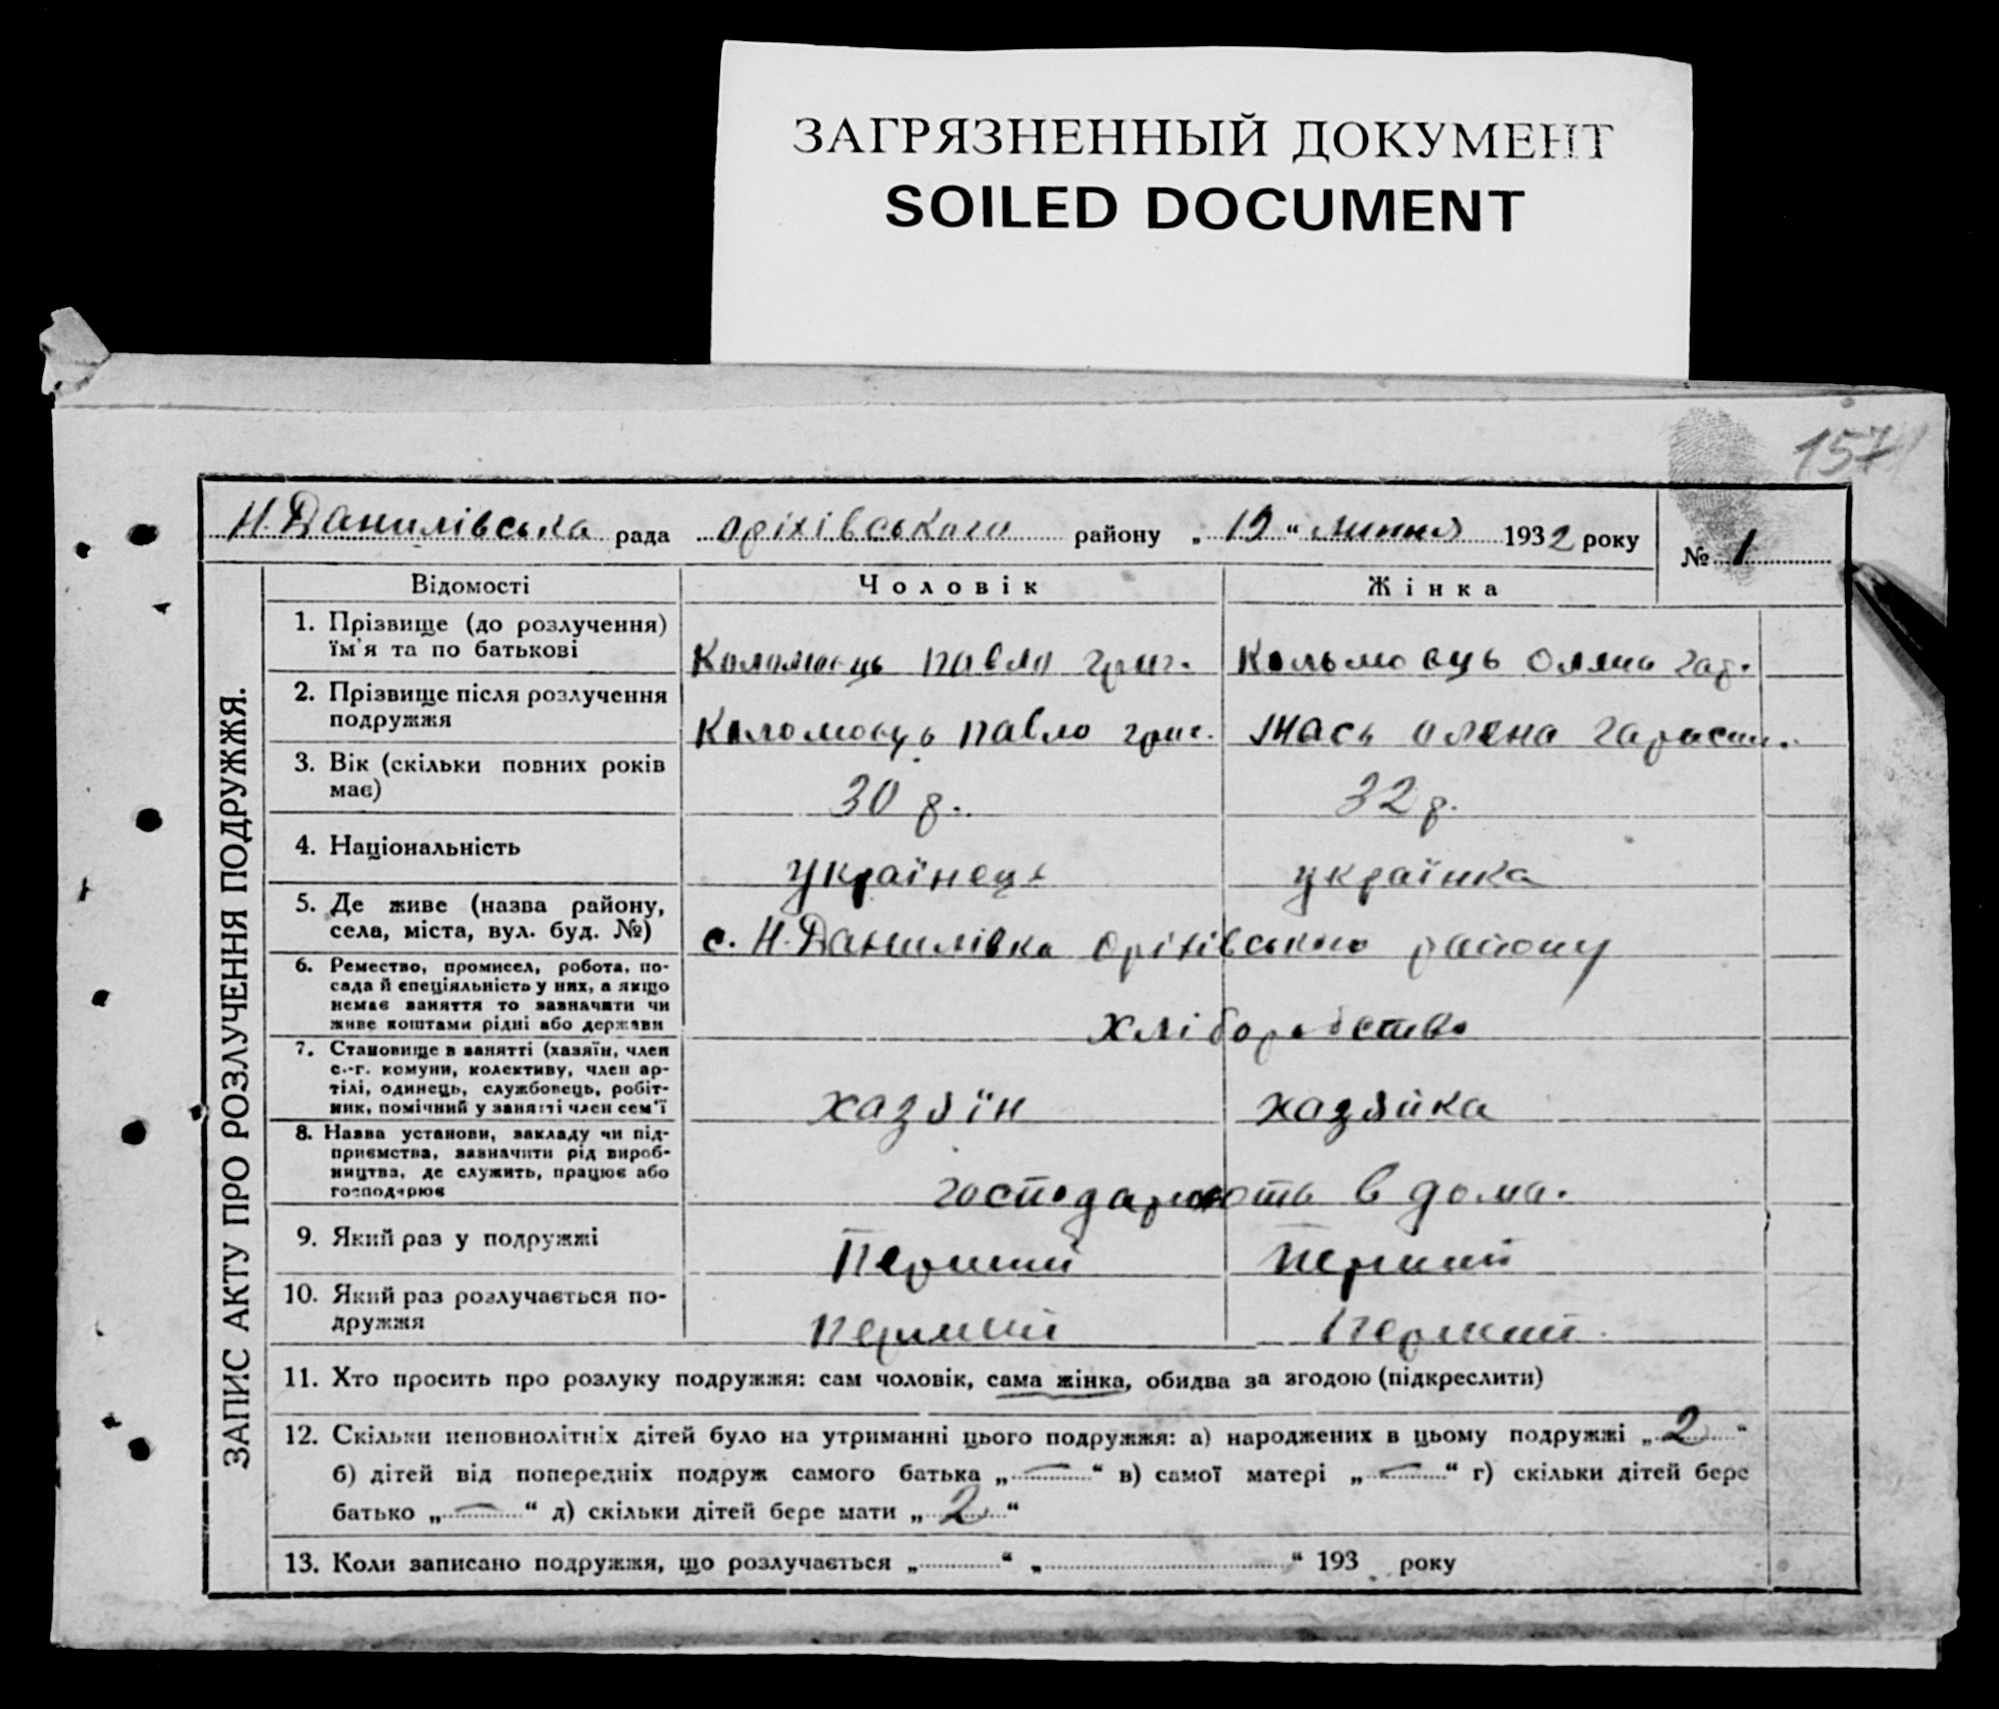 ЗАГРЯЗНЕННЫЙ ДОКУМЕНТ
SOILED DOCUMENT
157
Н. Данилівська рада оріхівського району „ 19 “ липня 1932 року № 1
ЗАПИС АКТУ ПРО РОЗЛУЧЕННЯ ПОДРУЖЖЯ.
Відомості Чоловік Жінка
1. Прізвище (до розлучення)
їм'я та по батькові Коломоєць Павло григ. Кольмоєць Олена гар.
2. Прізвище після розлучення
подружжя Коломоєць Павло григ. олена
3. Вік (скільки повних років
має) 30 р. 32 р.
4. Національність українець українка
5. Де живе (назва району,
села, міста, вул. буд. №) с. Н-Данилівка Оріхівського району
6. Ремество, промисел, робота, по-
сада й спеціяльність у них, а якщо
немає заняття то зазначити чи
живе коштами рідні або держави хліборобство
7. Становище в занятті (хазяїн, член
с.-г. комуни, колективу, член ар-
тілі, одинець, службовець, робіт-
ник, помічний у занятті член сем'ї хазяїн хазяйка
8. Назва установи, закладу чи під-
приємства, зазначити рід вироб-
ництва, де служить, працює або
господарює господарюють в дома.
9. Який раз у подружжі Перший перший
10. Який раз розлучається по-
дружжя перший перший.
11. Хто просить про розлуку подружжя: сам чоловік, сама жінка, обидва за згодою (підкреслити)
12. Скільки неповнолітніх дітей було на утриманні цього подружжя: а) народжених в цьому подружжі „ 2 “
б) дітей від попередніх подруж самого батька „ — “ в) самої матері „ — “ г) скільки дітей бере
батько „ — “ д) скільки дітей бере мати „ 2 “
13. Коли записано подружжя, що розлучається „ “ „ “ 193 року